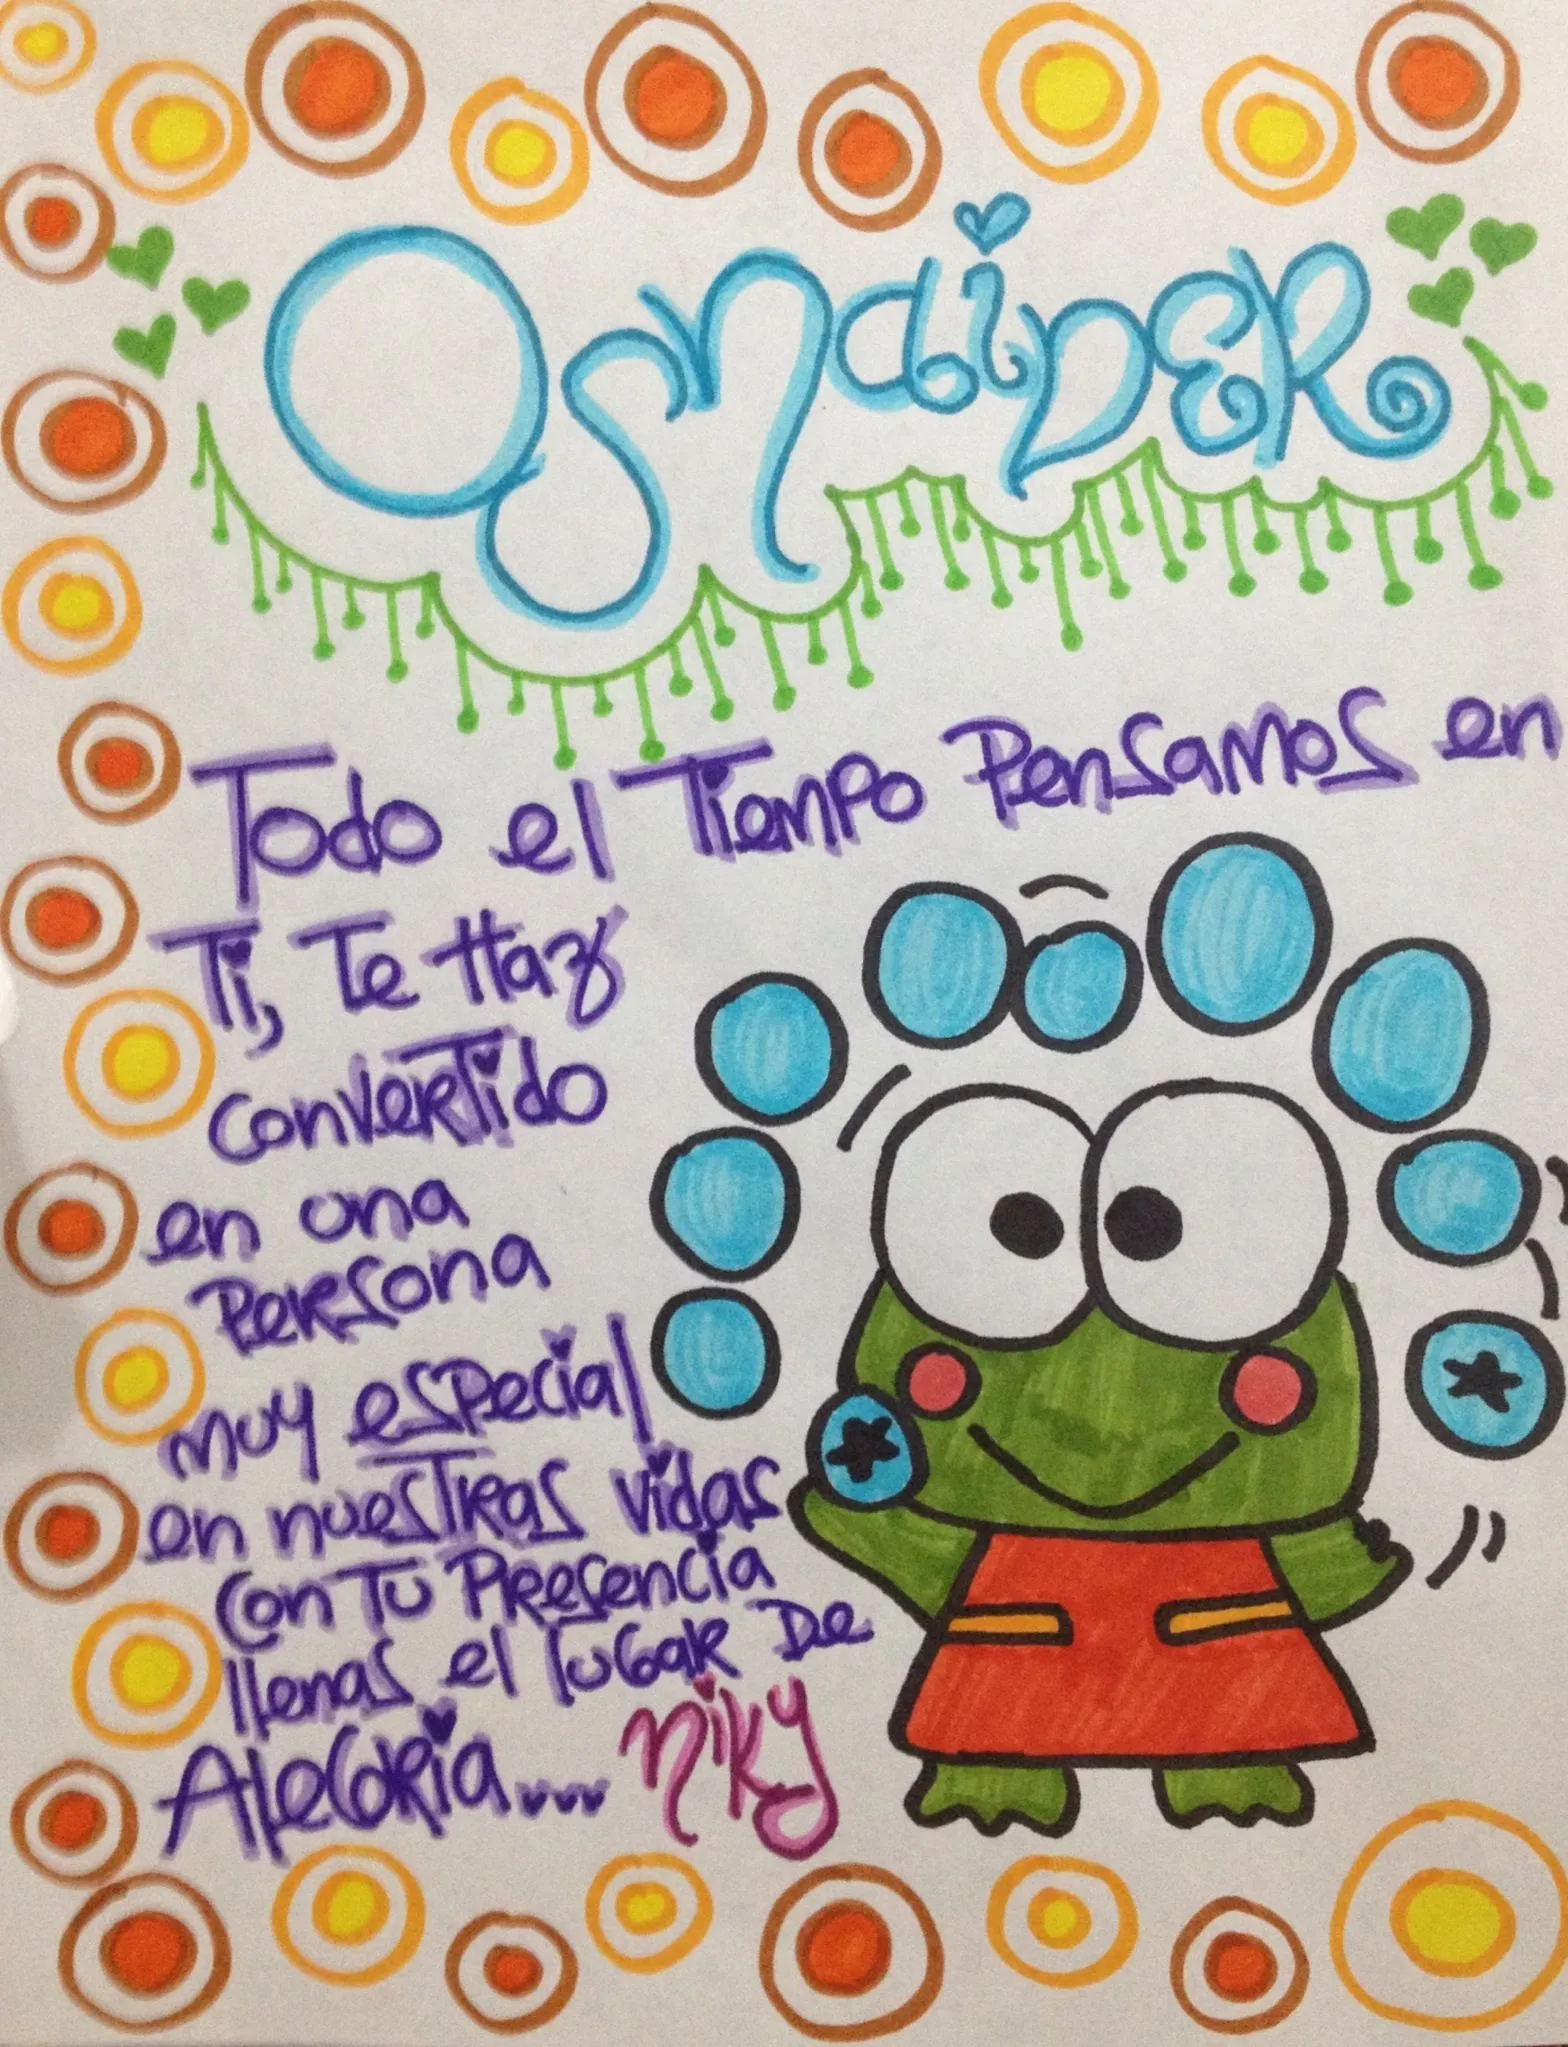 Osmaider
Todo el Tiempo Pensamos en
Ti, Te Haz
convertido
en una
Persona
muy especial
en nuestras vidas
con Tu Presencia
llenas el lugar De
Alegria... Niky